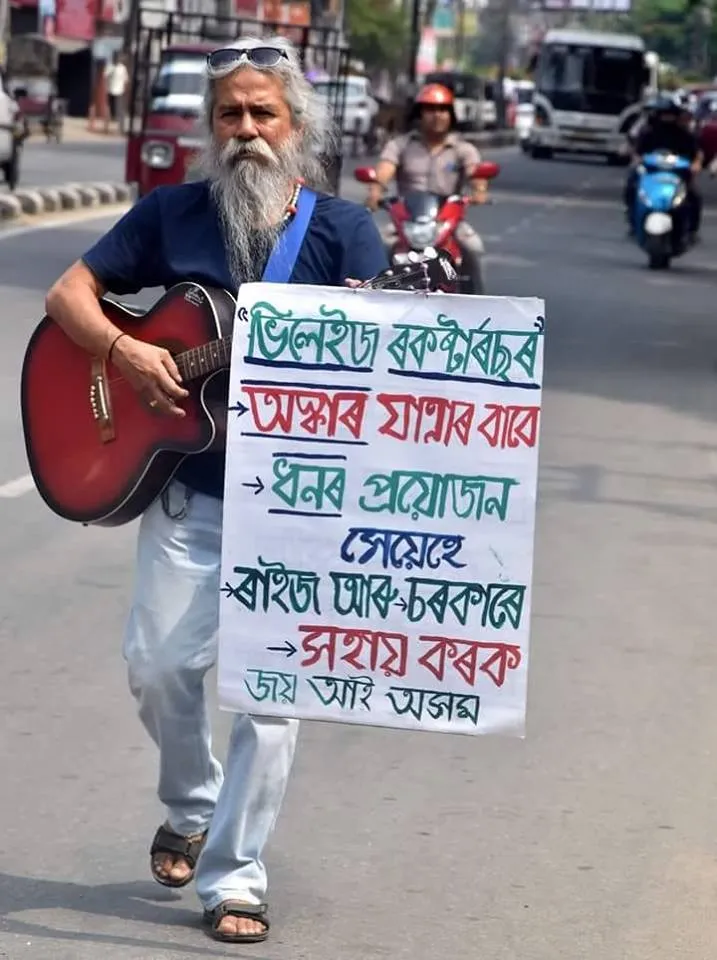 “ভিলেইজ ৰকষ্টাৰ্ৰছৰ”
→ অস্কাৰ যাত্ৰাৰ বাবে
→ ধনৰ প্ৰয়োজন
সেয়েহে
→ ৰাইজ আৰু → চৰকাৰে
→ সহায় কৰক
জয় আই অসম